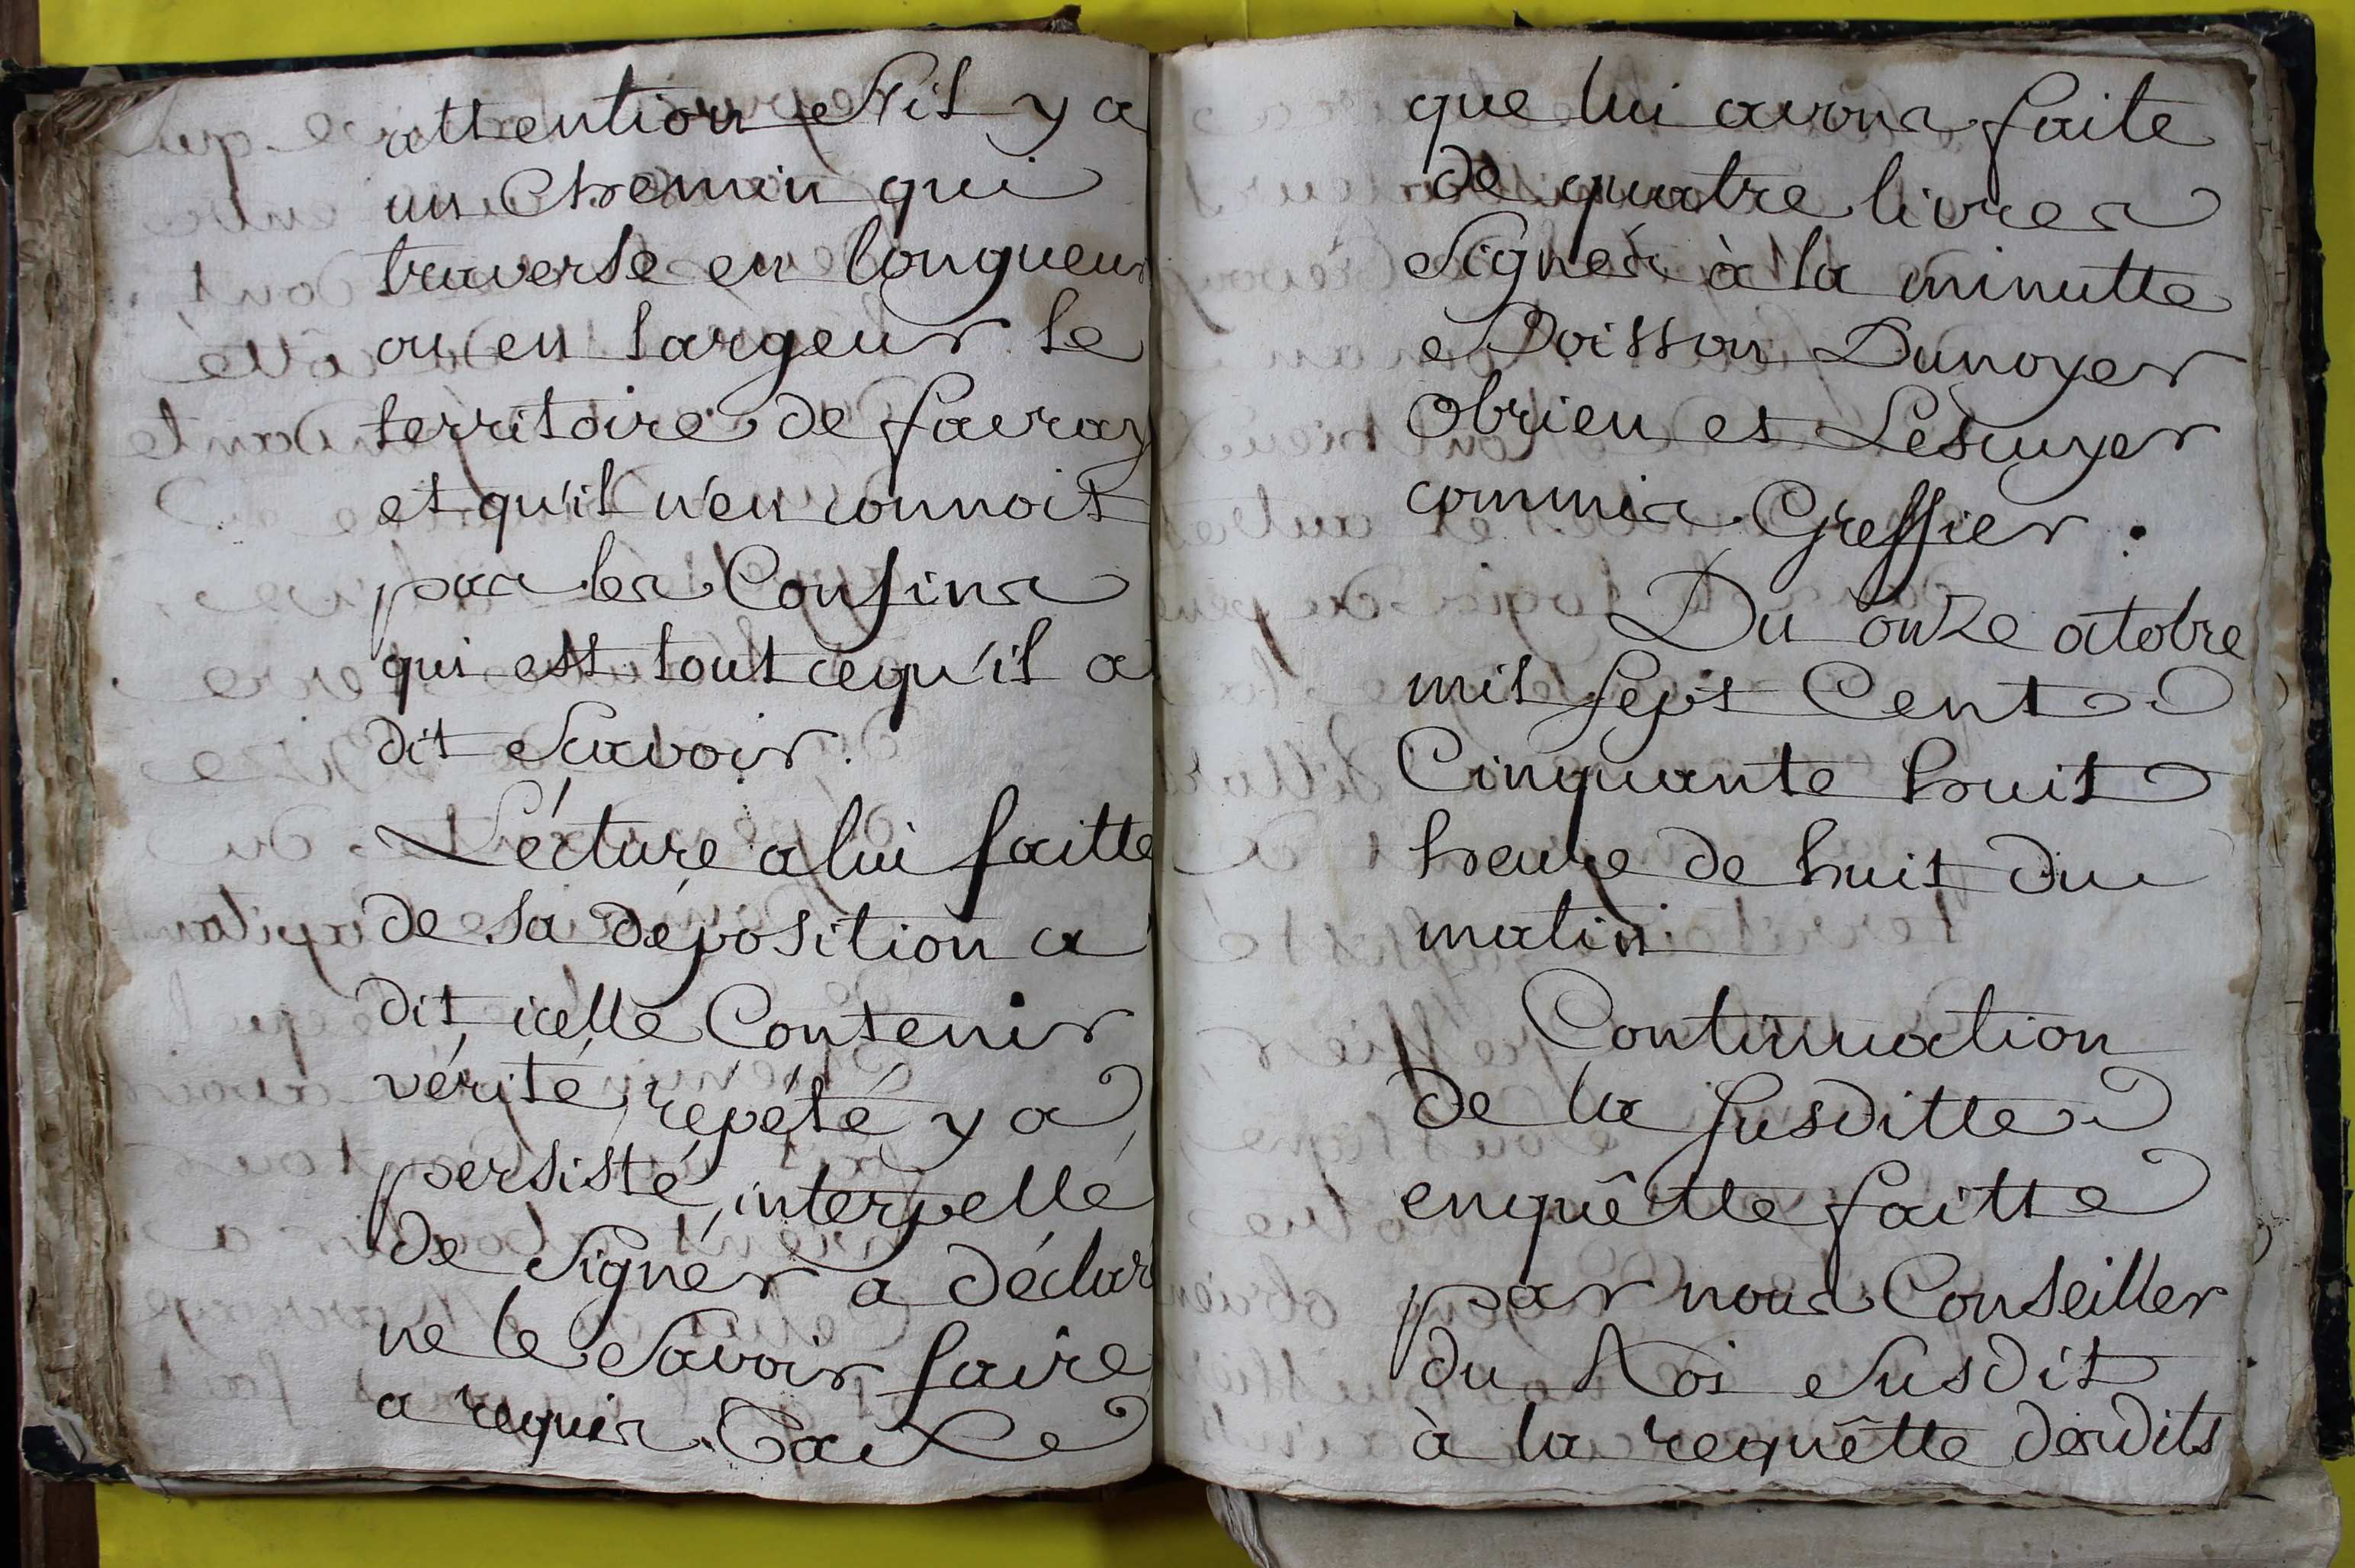 attention s'il y a
un Chemin qui
traverse en longueur
ou en largeur le
territoire de favray
et qu'il n'en connoit
pas les Confins
qui est tout cequ'il a
dit Scavoir.
Lécture a lui faitte
de sa déposition a
dit icelle Contenir
vérité, repété y a
persisté, interpellé
de Signer a déclar
ne le Savoir faire
a requis Taxe
que lui avons faite
de quatre livres
Signés à la minutte
Poisson Dunoyer
Obrien et Lèscuyer
commis Greffier.
Du onze octobre
mil sept Cent
Cinquante huit
heure de huit du
matin.
Continuation
de la susditte
enquêtte faitte
par nous Conseiller
du Roi Susdit
à la requêtte desdits